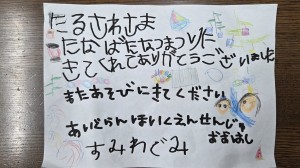 たるさわさま
たなばたなつまつりに
きてくれてありがとうございました
またあそびにきてください
あいとらんほいくえんせんじゅ
おおはし
すみれぐみ